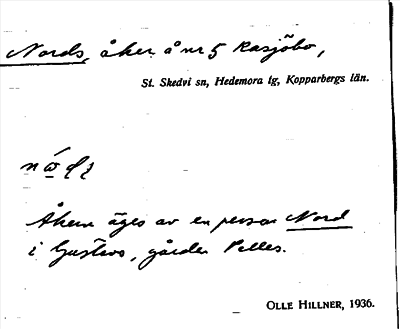 Nords, åker å nr 5 Kasjöbo,
St. Skedvi sn, Hedemora lg, Kopparbergs län.
Åkern äges av en person Nord
i Gustavs, gården Pelles.
OLLE HILLNER, 1936.